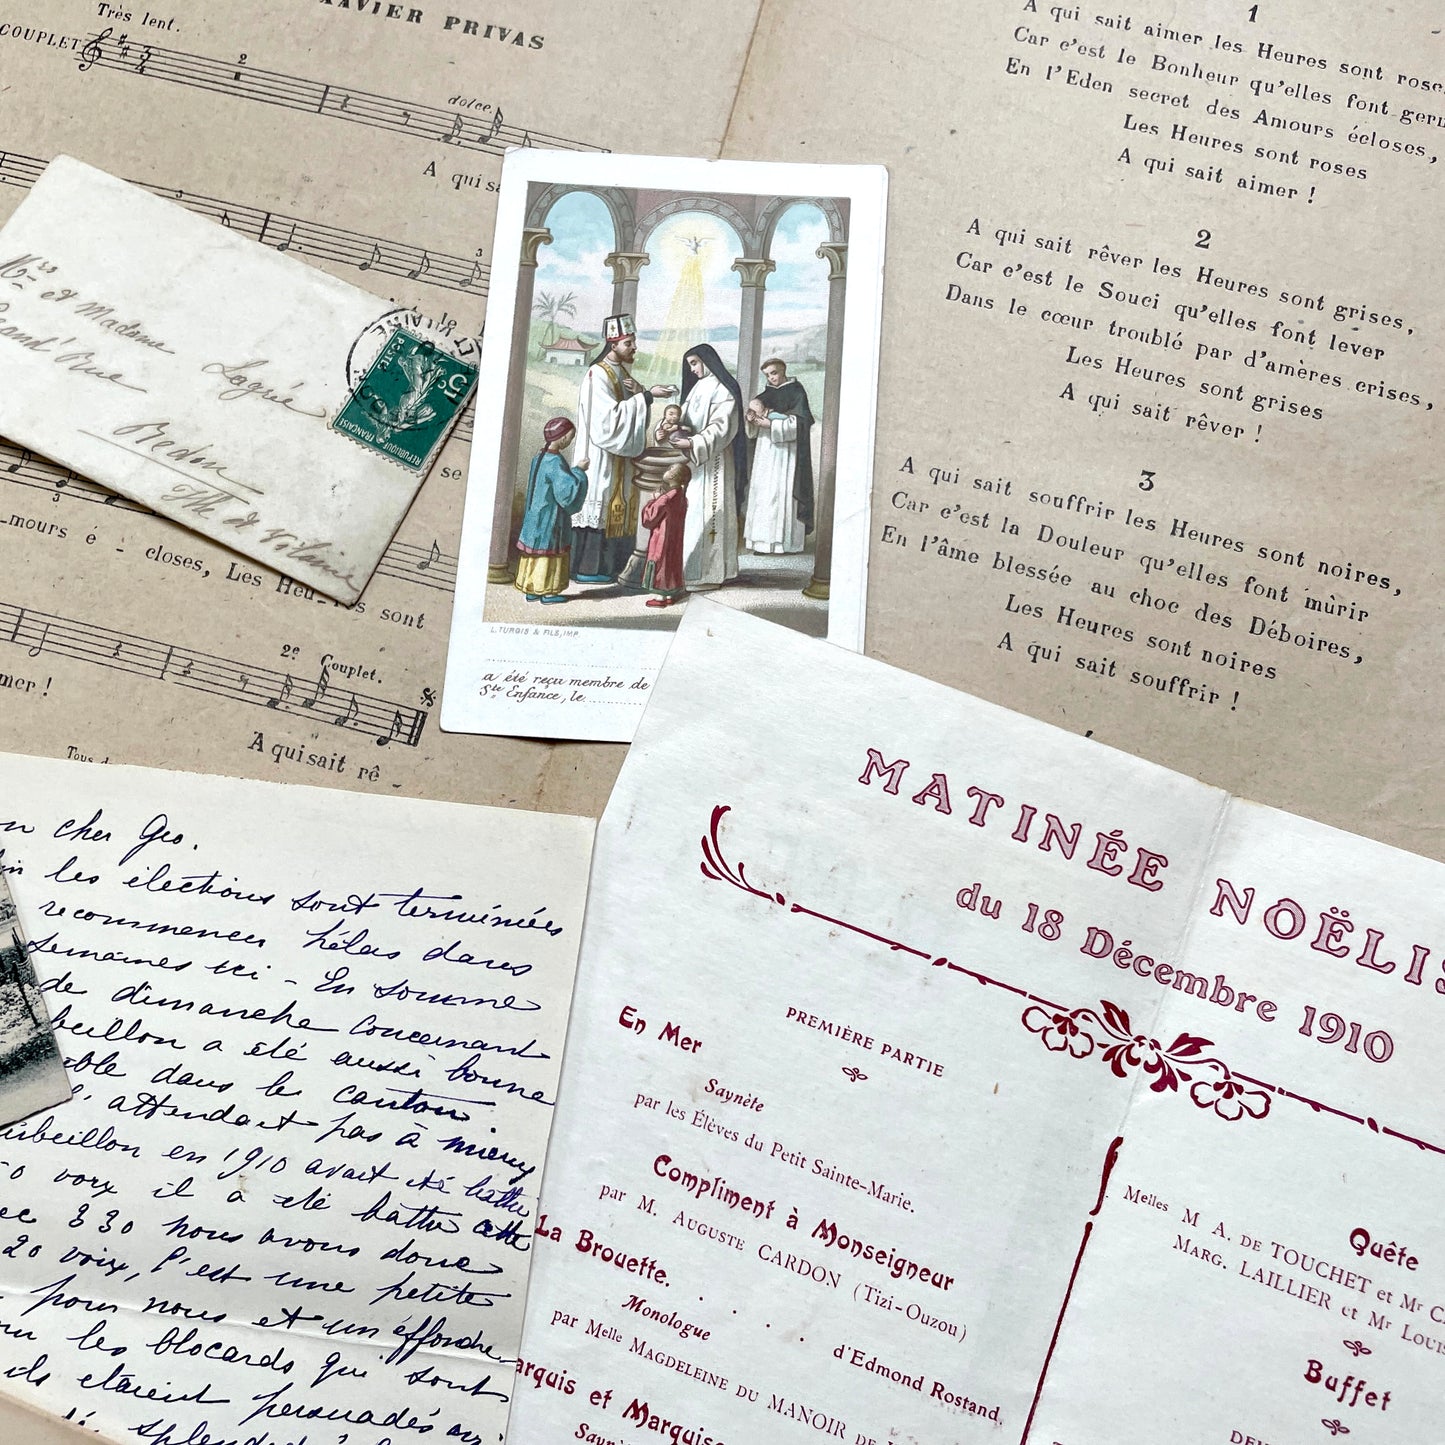 XAVIER PRIVAS
Très lent.
COUPLET
3
4
2
dolce.
A qui sa
3
3
3
se
-mours é - closes, Les Heu-res sont
2e Couplet.
mer !
A qui sait rê -
Tous d
1
A qui sait aimer les Heures sont rose
Car c'est le Bonheur qu'elles font germ
En l'Eden secret des Amours écloses,
Les Heures sont roses
A qui sait aimer !
2
A qui sait rêver les Heures sont grises,
Car c'est le Souci qu'elles font lever
Dans le cœur troublé par d'amères crises,
Les Heures sont grises
A qui sait rêver !
3
A qui sait souffrir les Heures sont noires,
Car c'est la Douleur qu'elles font mûrir
En l'âme blessée au choc des Déboires,
Les Heures sont noires
A qui sait souffrir !
et Madame Lagrée
Grand' Rue
Redon
Ille et Vilaine
5c
POSTES
REPUBLIQUE FRANÇAISE
L. TURGIS & FILS, IMP.
a été reçu membre de
Ste Enfance, le
on cher Geo.
fin les élections sont terminées
recommencer hélas dans
semaines ici - En somme
de dimanche concernant
beillon a été aussi bonne
ble dans le canton
l'attendait pas à mieux
urbeillon en 1910 avait été battu
50 voix il a été battu cette
ec 330 nous avons donc
20 voix, c'est une petite
pour nous et un effondre-
ou les blocards qui sont
ils étaient persuadés au
MATINÉE NOËLIS
du 18 Décembre 1910
PREMIÈRE PARTIE
En Mer
Saynète
par les Élèves du Petit Sainte-Marie.
Compliment à Monseigneur
par M. AUGUSTE CARDON (Tizi-Ouzou)
La Brouette. . . . . d'Edmond Rostand.
Monologue
par Melle MAGDELEINE DU MANOIR DE
arquis et Marquise
Sayn
Quête
Melles M A. DE TOUCHET et Mr C
MARG. LAILLIER et Mr LOUIS
Buffet
DEU